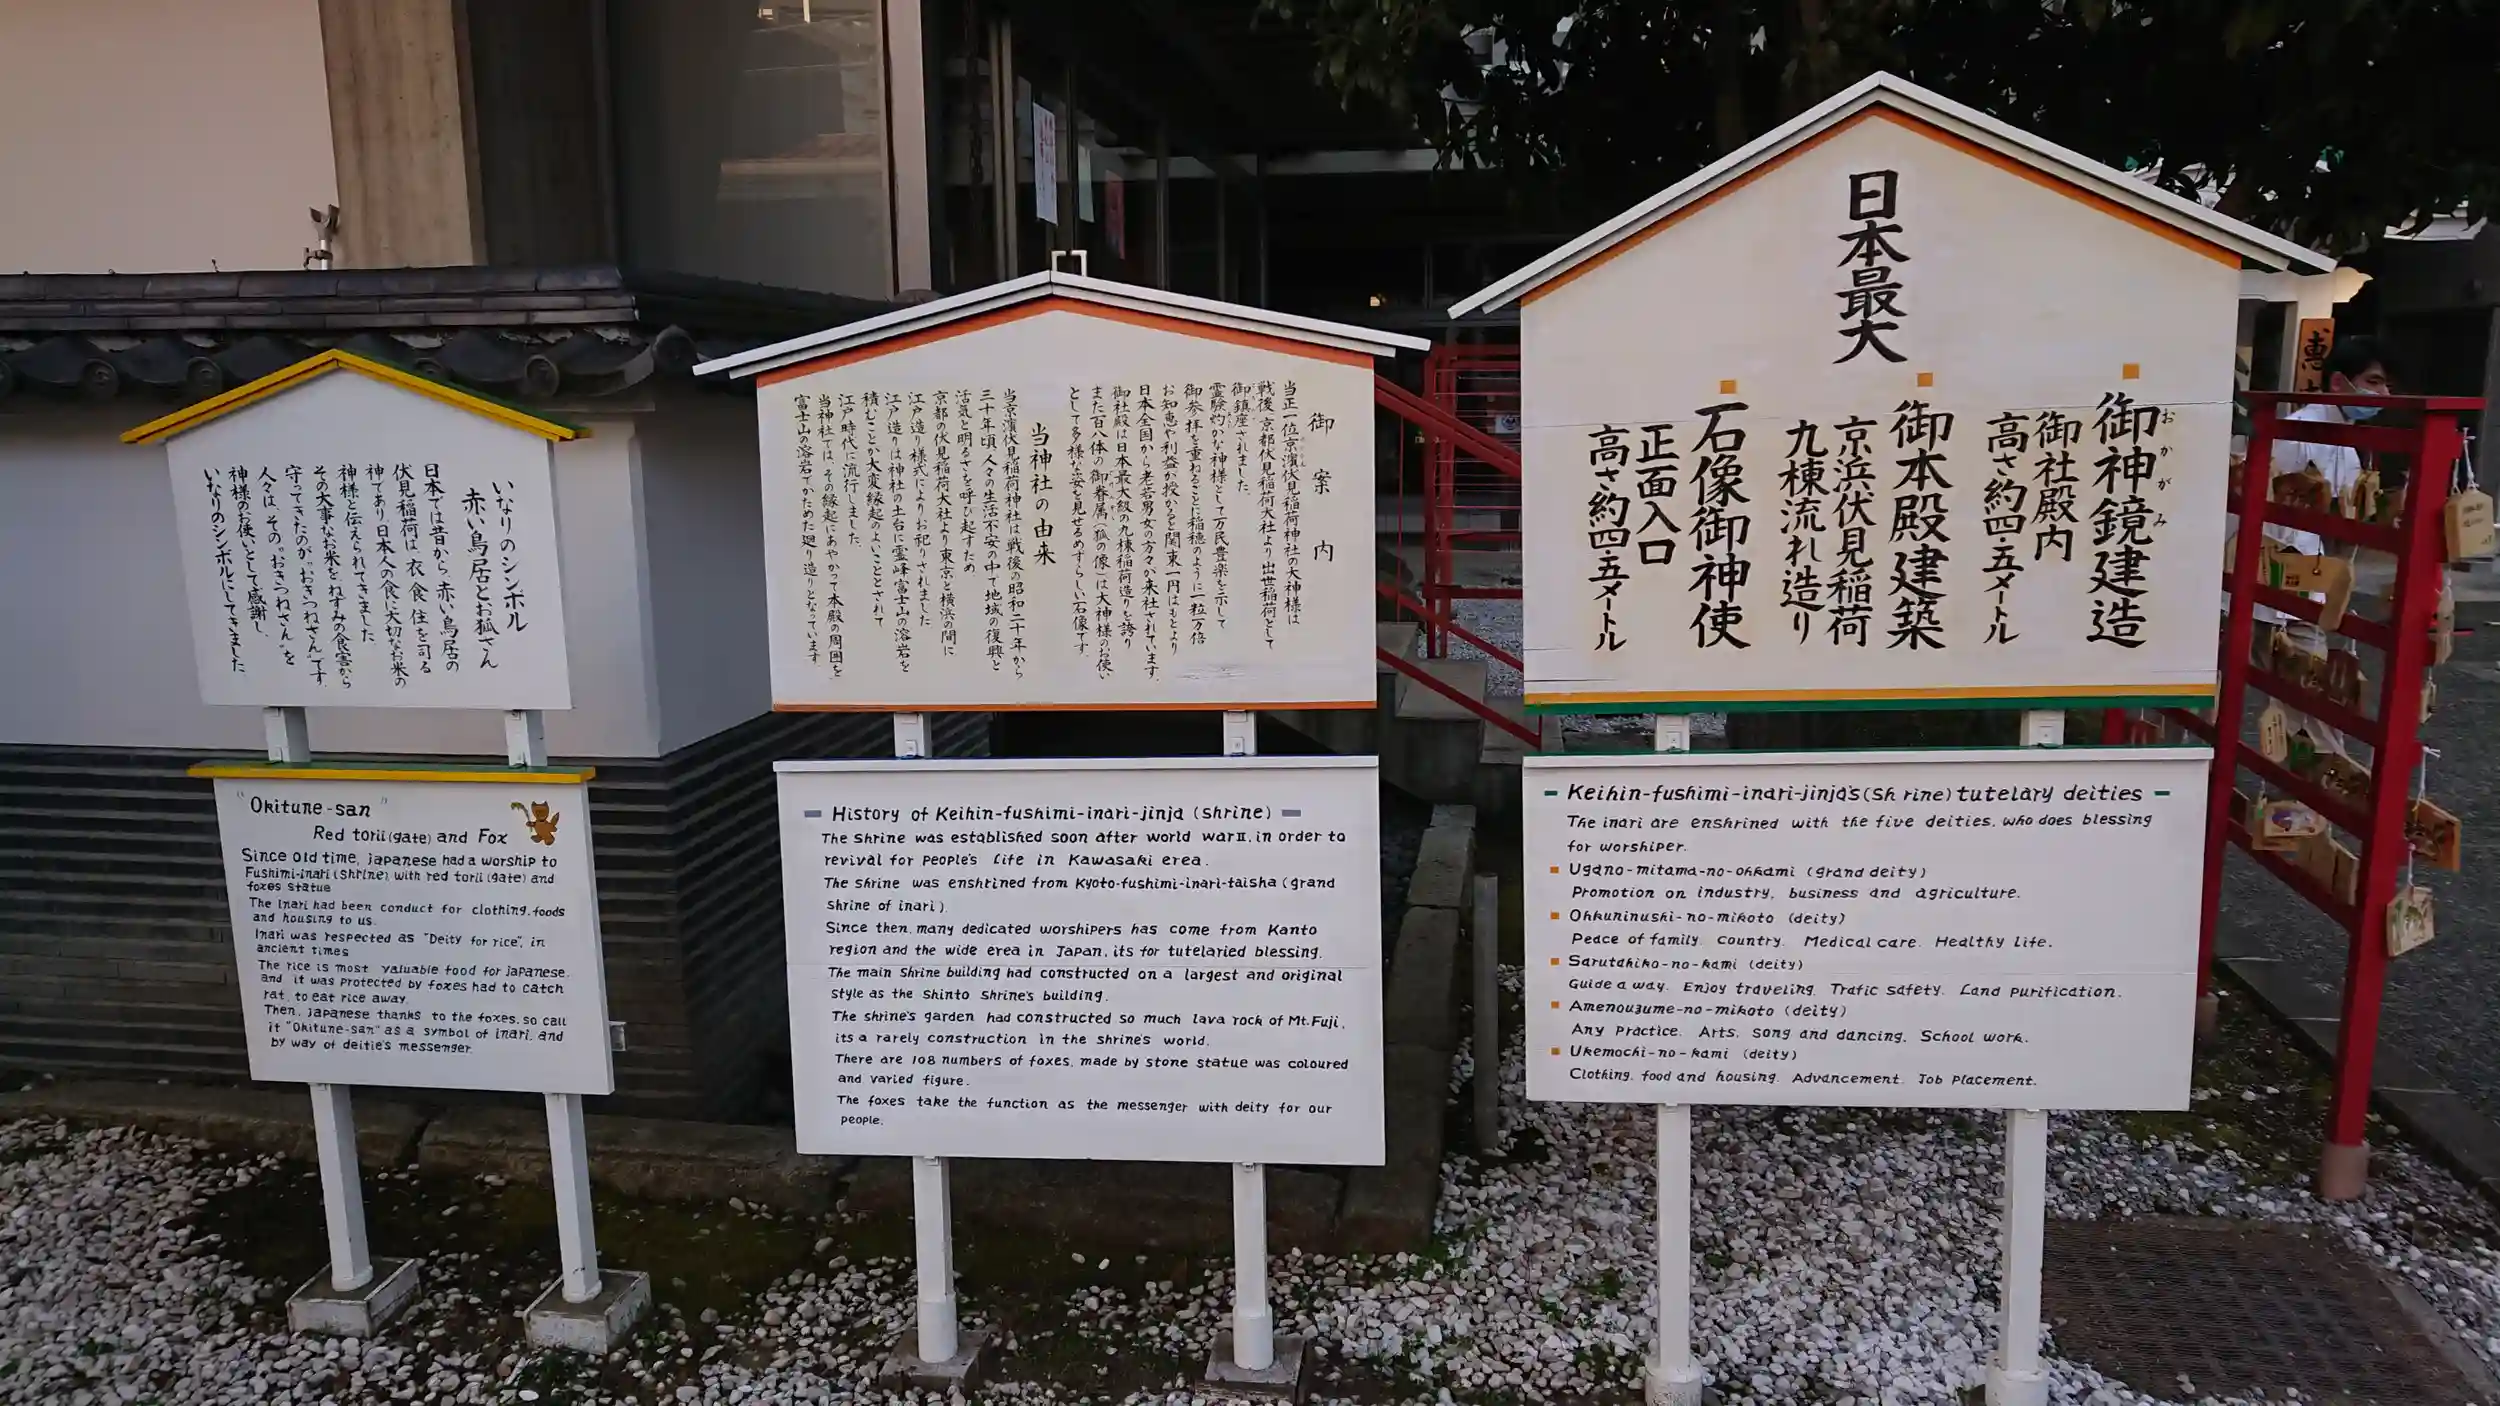 いなりのシンボル
赤い鳥居とお狐さん
日本では昔から、赤い鳥居の
伏見稲荷は、衣、食、住を司る
神であり日本人の食に大切なお米の
神様と伝えられてきました
その大事なお米を、ねずみの食害から
守ってきたのが、“おきつねさん”です
人々は、その“おきつねさん”を
神様のお使いとして感謝し、
いなりのシンボルにしてきました
"Okitune-san"
Red torii (gate) and Fox
Since old time, japanese had a worship to
Fushimi-inari (shrine), with red torii (gate) and
foxes statue
The Inari had been conduct for clothing, foods
and housing to us.
Inari was respected as "Deity for rice", in
ancient times
The rice is most valuable food for japanese,
and it was protected by foxes had to catch
rat, to eat rice away.
Then, japanese thanks to the foxes, so call
it "Okitune-san" as a symbol of inari, and
by way of deitie's messenger.
御案内
当正一位京濱伏見稲荷神社の大神様は
戦後京都伏見稲荷大社より出世稲荷として
御鎮座されました。
霊験灼かな神様として万民豊楽を示して
御参拝を重ねるごとに稲穂のように一粒万倍
お知恵や利益が授かると関東一円はもとより
日本全国から老若男女の方々が来社されています。
御社殿は日本最大級の九棟稲荷造りを誇り
また百八体の御眷属(狐の像)は大神様のお使い
として多様な姿を見せるめずらしい石像です
当神社の由来
当京濱伏見稲荷神社は戦後の昭和二十年から
三十年頃人々の生活不安の中で地域の復興と
活気と明るさを呼び起すため
京都の伏見稲荷大社より東京と横浜の間に
江戸造り様式によりお祀りされました
江戸造りは神社の土台に霊峰富士山の溶岩を
積むことが大変縁起のよいこととされて
江戸時代に流行しました
当神社では、その縁起にあやかって本殿の周囲を
富士山の溶岩でかためた廻り造りとなっています
History of Keihin-fushimi-inari-jinja (shrine)
The shrine was established soon after world war II, in order to
revival for people's life in Kawasaki erea.
The shrine was enshrined from Kyoto-fushimi-inari-taisha (grand
shrine of inari).
Since then, many dedicated worshipers has come from Kanto
region and the wide erea in Japan, its for tutelaried blessing.
The main shrine building had constructed on a largest and original
style as the Shinto shrine's building.
The shrine's garden had constructed so much lava rock of Mt.Fuji,
its a rarely construction in the shrine's world.
There are 108 numbers of foxes, made by stone statue was coloured
and varied figure.
The foxes take the function as the messenger with deity for our
people.
日本最大
御神鏡建造
おかがみ
御社殿内
高さ約四・五メートル
御本殿建築
京浜伏見稲荷
九棟流れ造り
石像御神使
正面入口
高さ約四・五メートル
Keihin-fushimi-inari-jinja's (Sh rine) tutelary deities
The inari are enshrined with the five deities, who does blessing
for worshiper.
Ugano-mitama-no-ohkami (grand deity)
Promotion on industry, business and agriculture.
Ohkuninushi-no-mikoto (deity)
Peace of family. Country. Medical care. Healthy life.
Sarutahiko-no-kami (deity)
Guide a way. Enjoy traveling. Trafic safety. Land purification.
Amenouzume-no-mikoto (deity)
Any practice. Arts, song and dancing. School work.
Ukemochi-no-kami (deity)
Clothing, food and housing. Advancement. Job placement.
恵